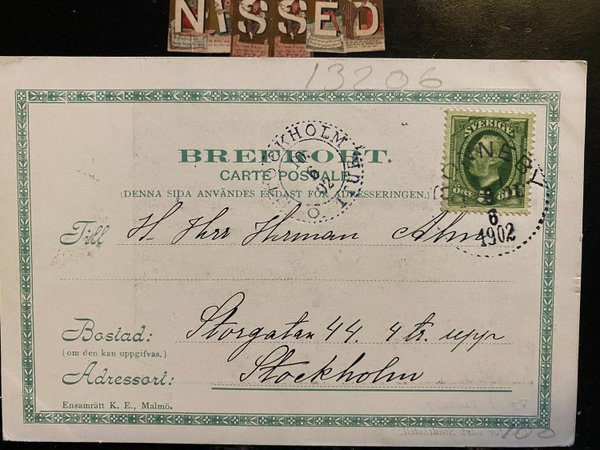 NISSED
13206
BREFKORT.
CARTE POSTALE
(DENNA SIDA ANVÄNDES ENDAST FÖR ADRESSERINGEN.)
STOCKHOLM
6
02
SVERIGE
8
6
1902
Till H Herr Herman
Bostad: Storgatan 44. 4 tr. upp
(om den kan uppgifvas.)
Adressort: Stockholm
Ensamrätt K. E., Malmö.
100